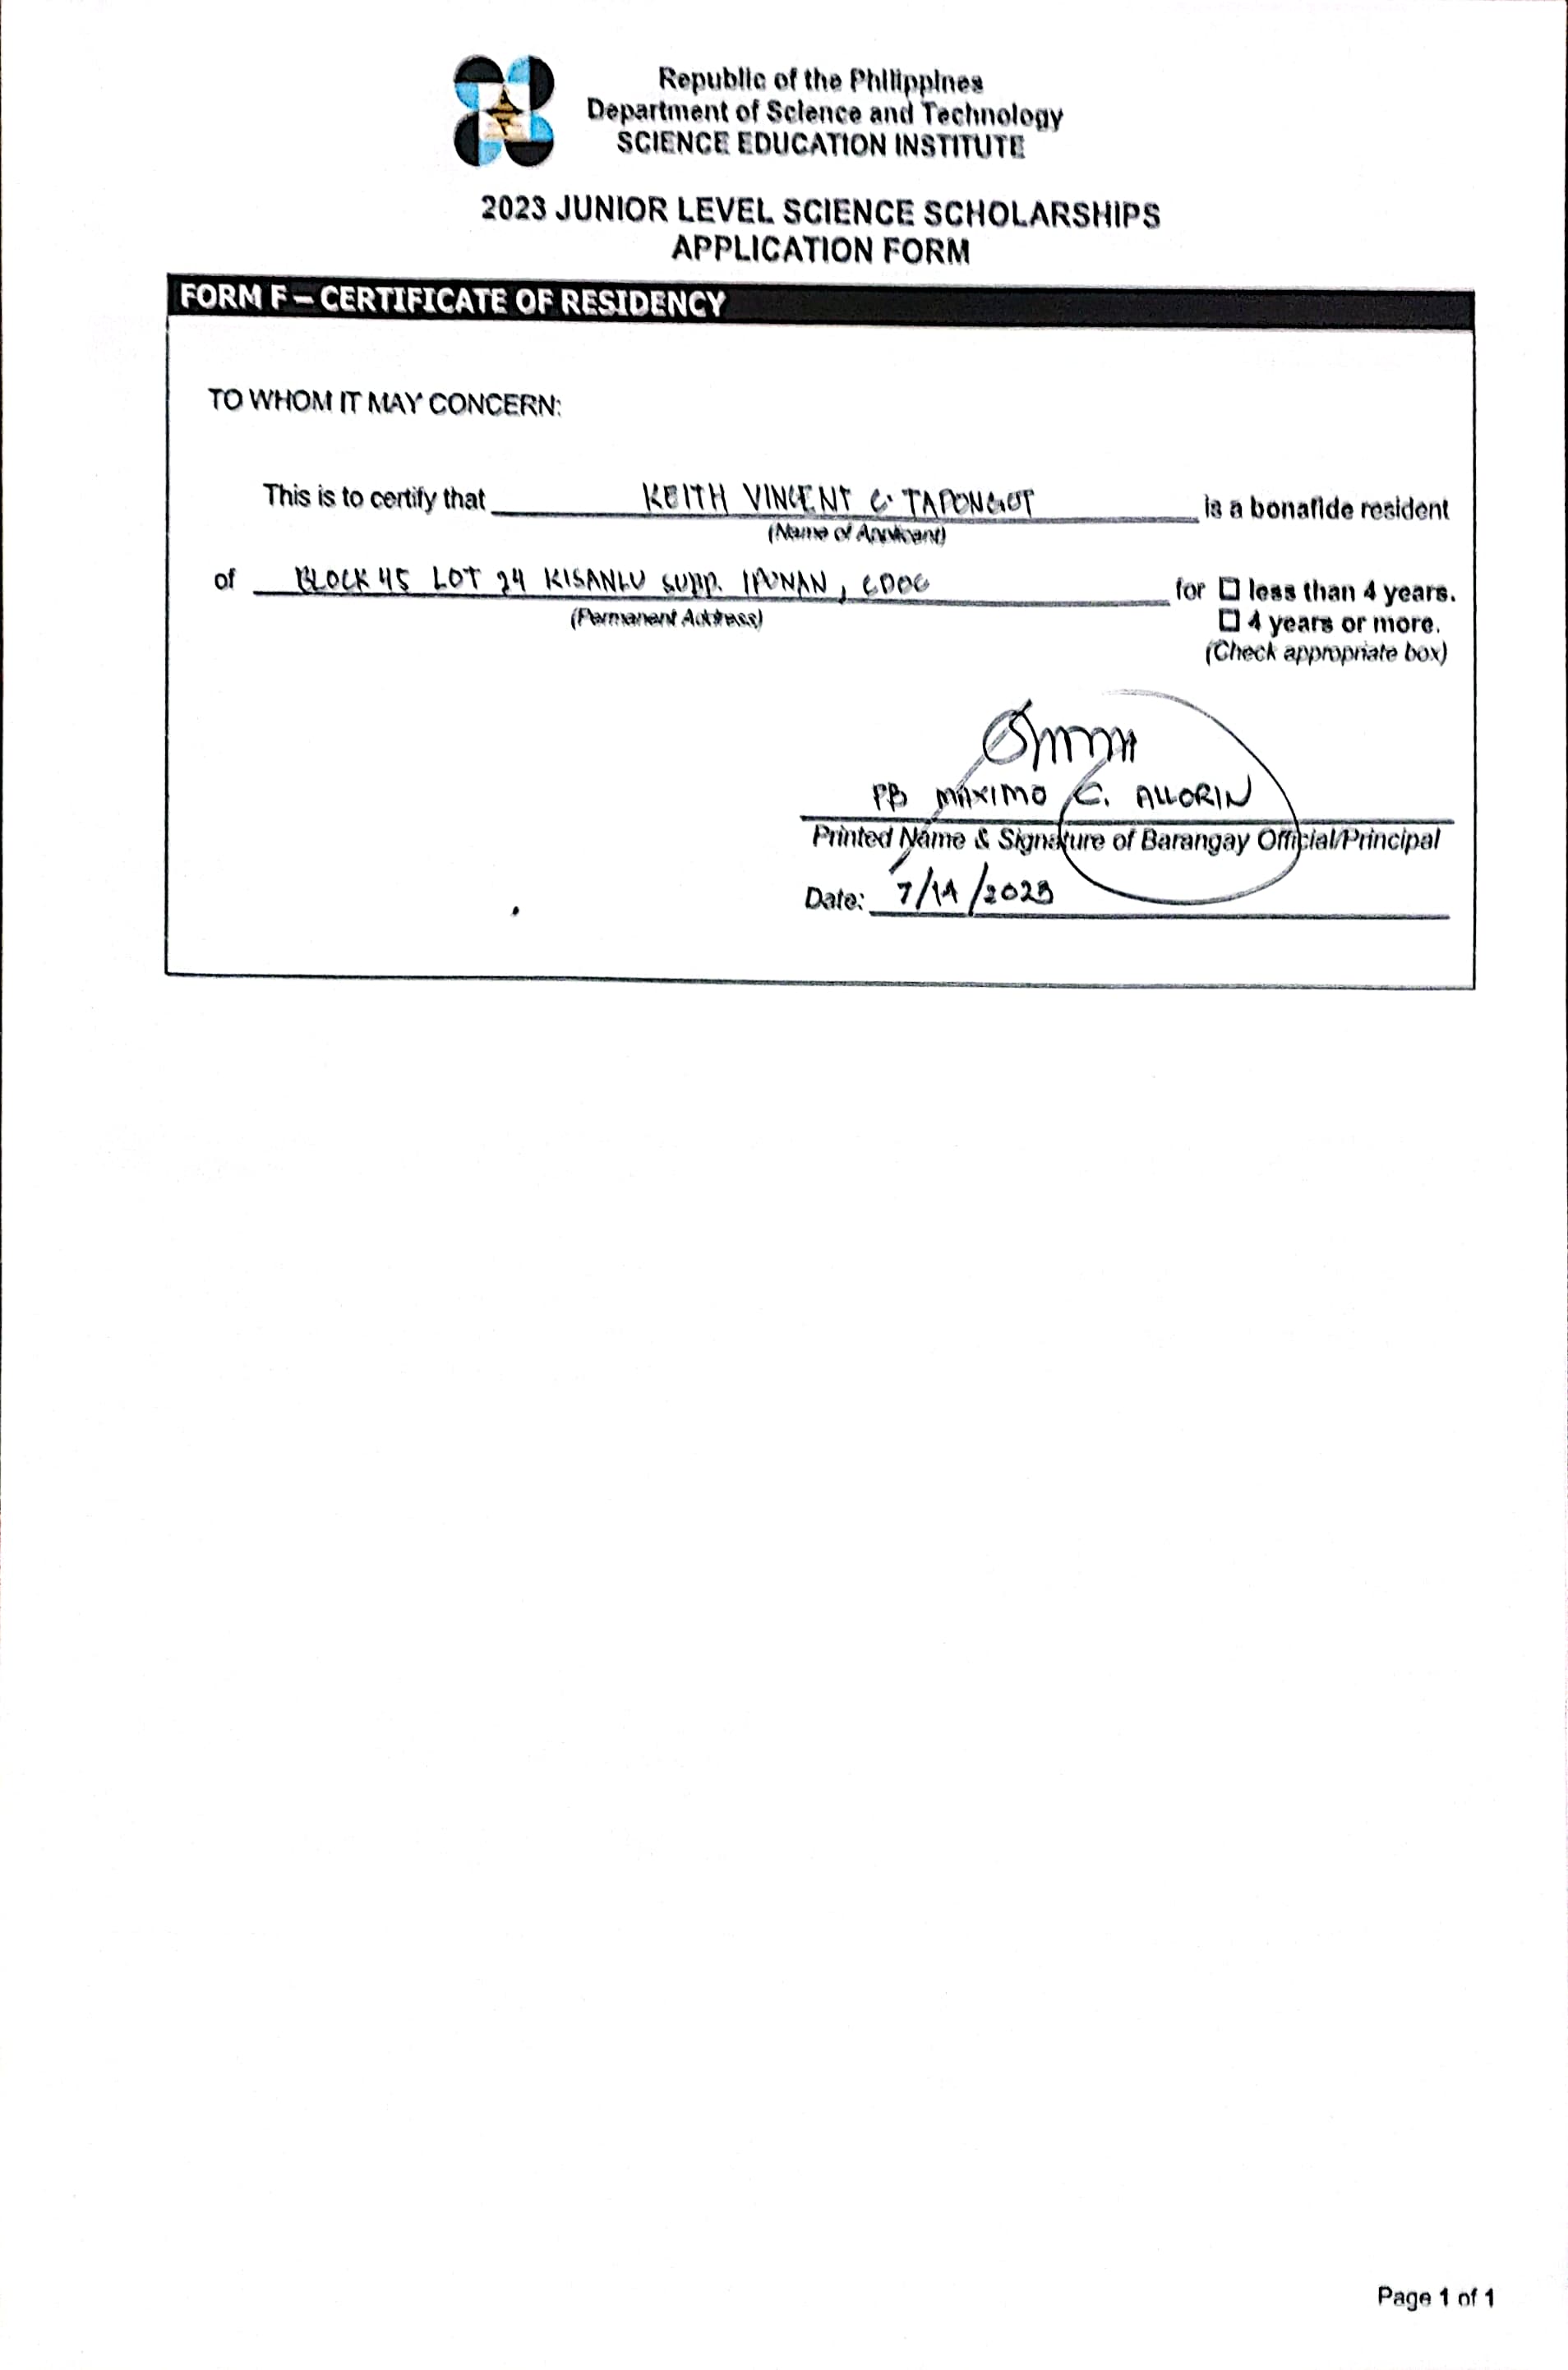 Republic of the Philippines
Department of Science and Technology
SCIENCE EDUCATION INSTITUTE
2023 JUNIOR LEVEL SCIENCE SCHOLARSHIPS
APPLICATION FORM
FORM F – CERTIFICATE OF RESIDENCY
TO WHOM IT MAY CONCERN:
This is to certify that KEITH VINCENT C. TAPONGOT is a bonafide resident
(Name of Applicant)
of BLOCK 45 LOT 24 KISANLU SUPP. IPONAN, CDOC for ☐ less than 4 years.
(Permanent Address) ☐ 4 years or more.
(Check appropriate box)
PB MAXIMO C. ALLORIN
Printed Name & Signature of Barangay Official/Principal
Date: 7/14/2023
Page 1 of 1